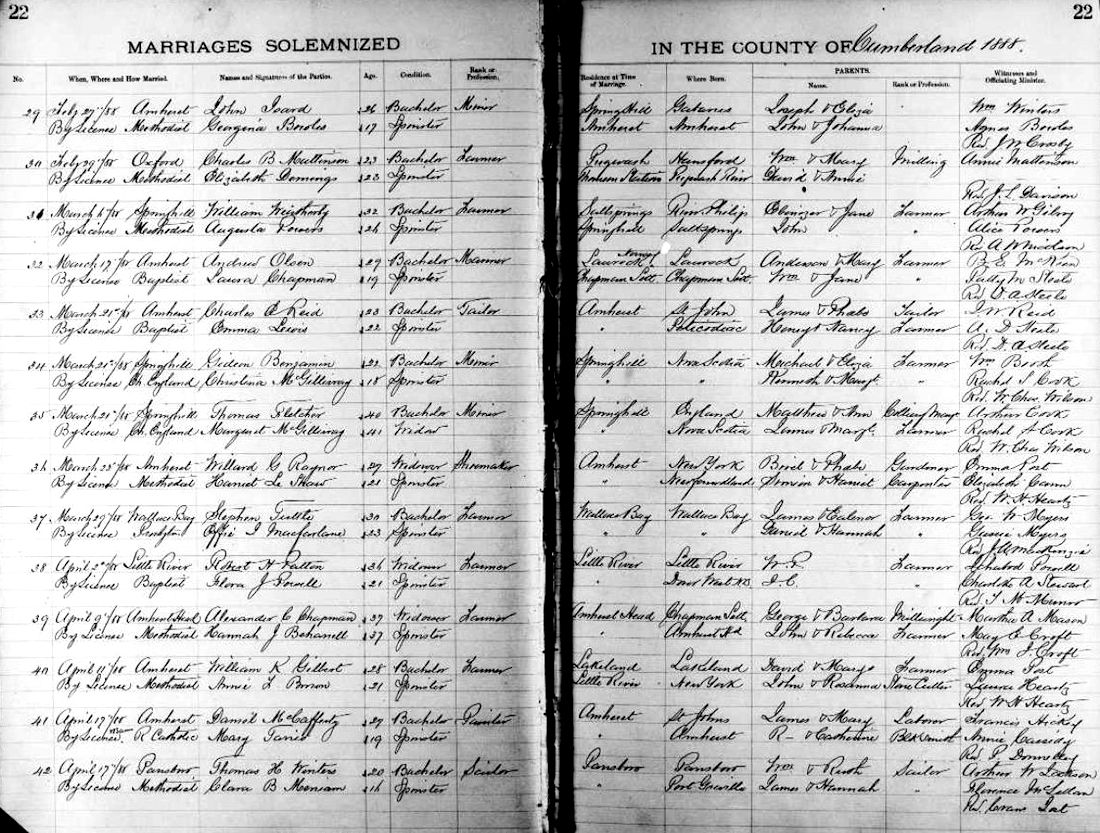 22
22
MARRIAGES SOLEMNIZED
IN THE COUNTY OF Cumberland 1888.
No. When, Where and How Married. Names and Signatures of the Parties. Age. Condition. Rank or Profession. Residence at Time of Marriage. Where Born. PARENTS. Name. Rank or Profession. Witnesses and Officiating Minister.
29 Feby 27/88 Amherst John Isard 26 Bachelor Miner Springhill Joseph & Eliza Wm Winters
By Licence Methodist Georgina Bowles 17 Spinster Amherst Amherst John & Johanna Agnes Bowles
Rev J. M. Crosby
30 Feby 29/88 Oxford Charles B Mattinson 23 Bachelor Farmer Pugwash Hansford Wm & Mary Milling Annie Mattinson
By Licence Methodist Elizabeth 23 Spinster Pugwash River David & Annie
Rev J. L. Dawson
31 March 6/88 Springhill William Weatherby 32 Bachelor Farmer Saltsprings River Philip Ebenezer & Jane Farmer Arthur W
By Licence Methodist Augusta Powers 26 Spinster Springhill Saltsprings John " Alice Powers
Rev A
32 March 17/88 Amherst Andrew Olsen 27 Bachelor Mariner Norway Anderson & Mary Farmer B. E.
By Licence Baptist Laura Chapman 19 Spinster Chapman Sett. Chapman Sett. Wm & Jane " M Steele
Rev D. A Steele
33 March 21/88 Amherst Charles Reid 23 Bachelor Tailor Amherst St John James & Phebe Tailor Reid
By Licence Baptist Emma Lewis 22 Spinster " Petitcodiac Henry & Nancy Farmer A. D Steele
Rev. D. A. Steele
34 March 21/88 Springhill Gideon Benjamin 22 Bachelor Miner Springhill Nova Scotia Michael & Eliza Farmer Wm Booth
By Licence Ch. England Christina McGillivray 18 Spinster " " Kenneth & Margt " Rachel S Cook
Rev. W. Chas Wilson
35 March 21/88 Springhill Thomas Fletcher 40 Bachelor Miner Springhill England Matthew & Ann Colliery Arthur Cook
By Licence Ch. England Margaret McGillivray 41 Widow " Nova Scotia James & Margt. Farmer Rachel S Cook
Rev W. Chas Wilson
36 March 25/88 Amherst Willard G Raynor 27 Widower Shoemaker Amherst New York & Phebe Gardener Emma
By Licence Methodist Harriet Le Shaw 21 Spinster " Newfoundland Simeon & Harriet Carpenter Elizabeth
Rev. W. H. Heartz
37 March 29/88 Wallace Bay Stephen Tuttle 30 Bachelor Farmer Wallace Bay Wallace Bay James & Eleanor Farmer Geo. W Myers
By Licence Effie I Macfarlane 23 Spinster " " Daniel & Hannah " Gussie Myers
Rev J. A. MacKenzie
38 April 2/88 Little River Robert H Patton 36 Widower Farmer Little River Little River W. E. Farmer Powell
By Licence Baptist Flora J Powell 21 Spinster " I. C. Charlotte A Stewart
Rev. T. M. Munro
39 April 9/88 Amherst Head Alexander C Chapman 37 Widower Farmer Amherst Head Chapman Sett George & Barbara Millwright Martha A Mason
By Licence Methodist Hannah J 37 Spinster " Amherst Hd John & Rebecca Farmer May E Croft
Rev. Wm J. Croft
40 April 11/88 Amherst William K Gilbert 28 Bachelor Farmer Lakeland Lakeland David & Mary Farmer Emma
By Licence Methodist Annie L Brown 21 Spinster Little River New York John & Rosanna Stone Cutter Laura Heartz
Rev. W H Heartz
41 April 17/88 Amherst Daniel McCafferty 27 Bachelor Painter Amherst St Johns James & Mary Laborer Francis Hickey
By Licence R Catholic Mary 19 Spinster " Amherst R— & Catherine Blk Smith Annie Cassidy
Rev. P.
42 April 17/88 Parrsboro Thomas H Winters 20 Bachelor Sailor Parrsboro Parrsboro Wm & Ruth Sailor Arthur W Jackson
By Licence Methodist Clara B Merriam 16 Spinster " Port Greville James & Hannah " Florence McLellan
Rev. Evans